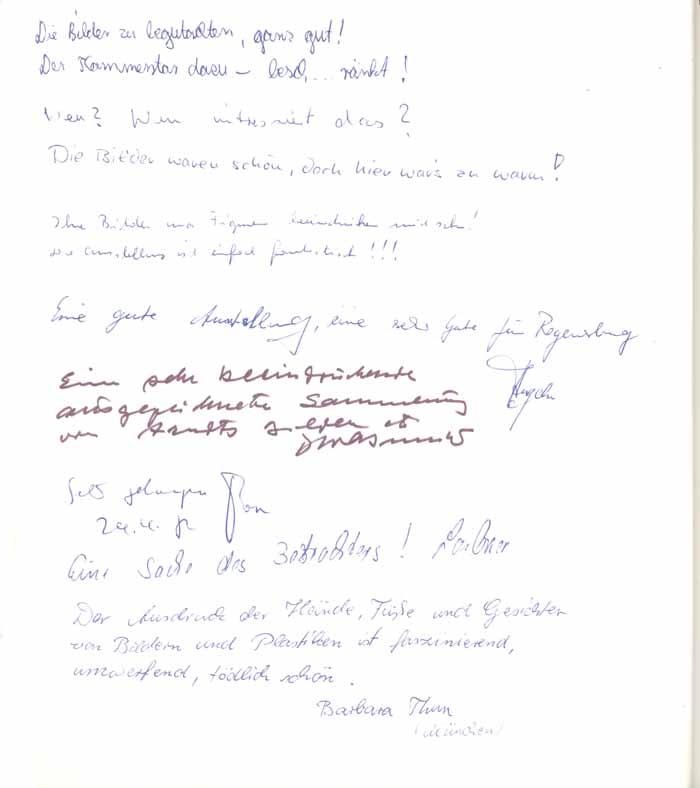 Die Bilder zu begutachten, ganz gut!
Der Kommentar dazu – besch... ränkt!
Wen? Wen intressiert das?
Die Bilder waren schön, doch hier war's zu warm!
Ihre Bilder Figuren beeindrucken mich sehr!
die Ausstellung ist einfach fantastisch!!!
Eine gute Ausstellung, eine sehr gute für Regensburg
Eine sehr beeindruckende
ausgezeichnete Sammlung
von
Sehr gelungen
Eine Sache des Betrachters!
Der Ausdruck der Hände, Füße und Gesichter
von Bildern und Plastiken ist faszinierend,
umwerfend, tödlich schön.
Barbara Thun
(München)